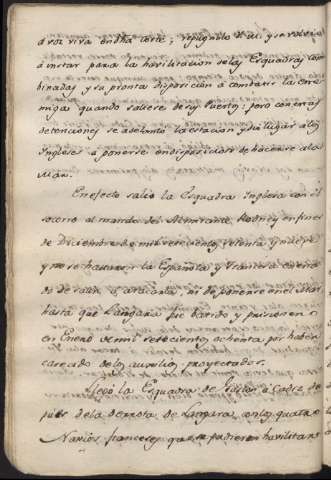 a voz viva en dha Corte; repugnolo el Rey y se volvio
á instar para la havilitacion de las Esquadras com
binadas y su pronta disposicion á combatir la ene
miga quando saliese de sus Puertos; pero con estas
detenciones se adelantó la estacion y dio lugar a los
Ingleses a ponerse en disposicion de hacerse a la
Mar.
En efecto salio la Esquadra Inglesa con el
socorro al mando del Almirante Rodney en fines
de Diciembre de mil setecientos setenta y nuebe
y no se hallaron la Española y Francesa en esta
do de salir á atacarla, ni de ponerse en el Mar
hasta que Langara fue batido y prisionero
en Enero de mil setecientos ochenta por haber
carecido de los auxilios proyectados.
Llegó la Esquadra de Gaston á Cadiz des
pues de la derrota de Langara, con los quatro
Navios franceses que se pudieron havilitar